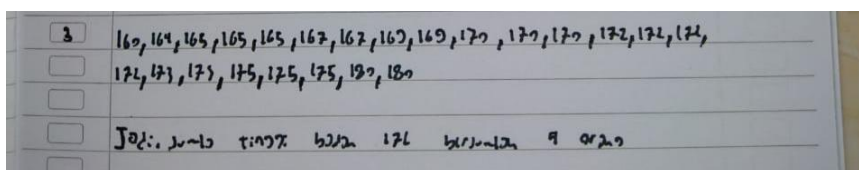 3 160, 164, 165, 165, 165, 167, 167, 169, 169, 170, 170, 170, 172, 172, 172,
172, 173, 173, 175, 175, 175, 180, 180
Jadi, jumlah tinggi badan 172 berjumlah 4 orang